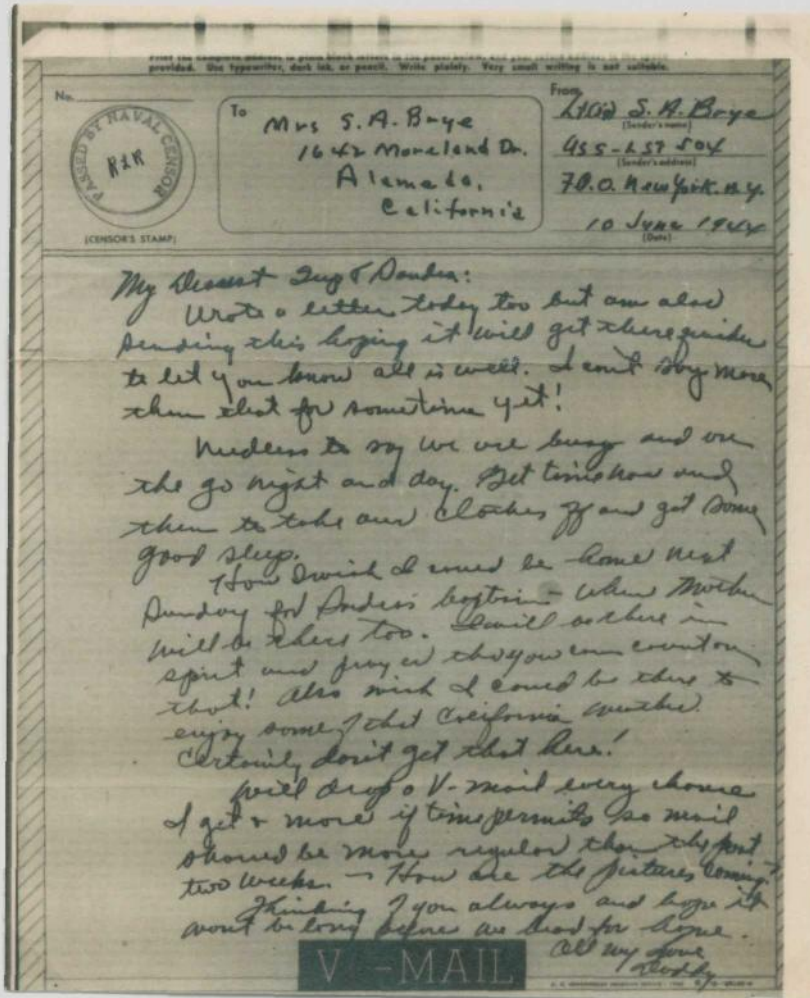 Print the complete address in plain block letters in the panel below, and your return address in the space
provided. Use typewriter, dark ink, or pencil. Write plainly. Very small writing is not suitable.
No.
PASSED BY NAVAL CENSOR
(CENSOR'S STAMP)
To
Mrs S. A. Brye
1642 Moreland Dr.
Alameda,
California
From
S. A. Brye
(Sender's name)
USS-LST 504
(Sender's address)
F.P.O. New York. N.Y.
10 June 1944
(Date)
My Dearest & Sandra:
Wrote a letter today too but am also
sending this hoping it will get there quicker
to let you know all is well. I can't say more
than that for sometime yet!
Needless to say we are busy and on
the go night and day. Get time now and
then to take our clothes off and get some
good sleep.
How I wish I could be home next
Sunday for baptism - when Mother
will be there too. I will be there in
spirit and prayer tho you can count on
that! Also wish I could be there to
enjoy some of that California weather.
Certainly don't get that here!
Will drop a V-mail every chance
I get & more if time permits so mail
should be more regular than the past
two weeks. - How are the pictures coming?
Thinking of you always and hope it
won't be long before we head for home.
All my love
Daddy
V - MAIL